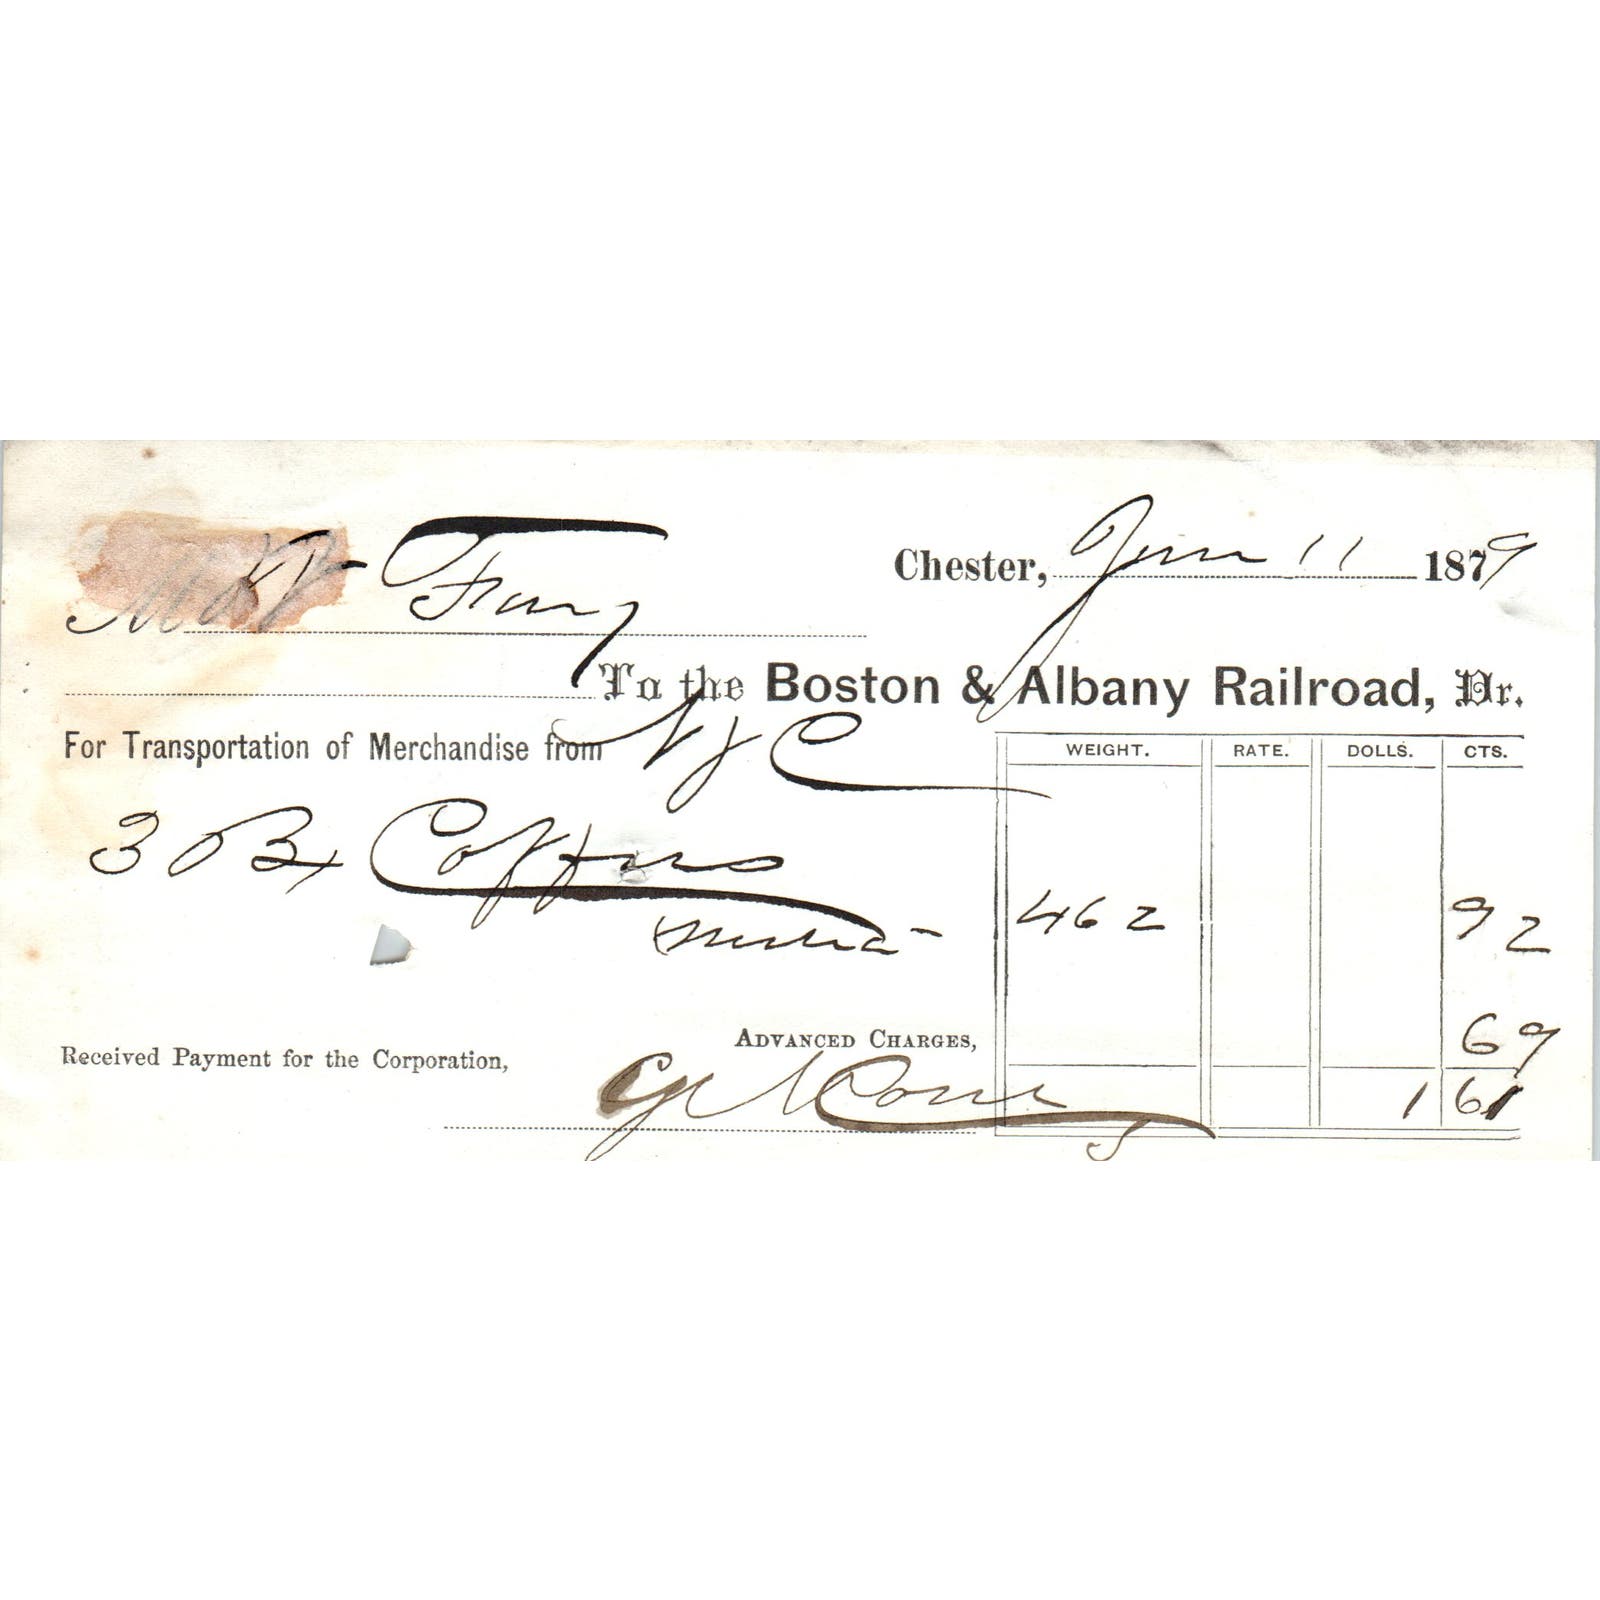 Chester, June 11 1879
M
To the Boston & Albany Railroad, Dr.
For Transportation of Merchandise from N Y C
WEIGHT. RATE. DOLLS. CTS.
3 Bx Coffins
462 92
ADVANCED CHARGES, 69
Received Payment for the Corporation,
1 61